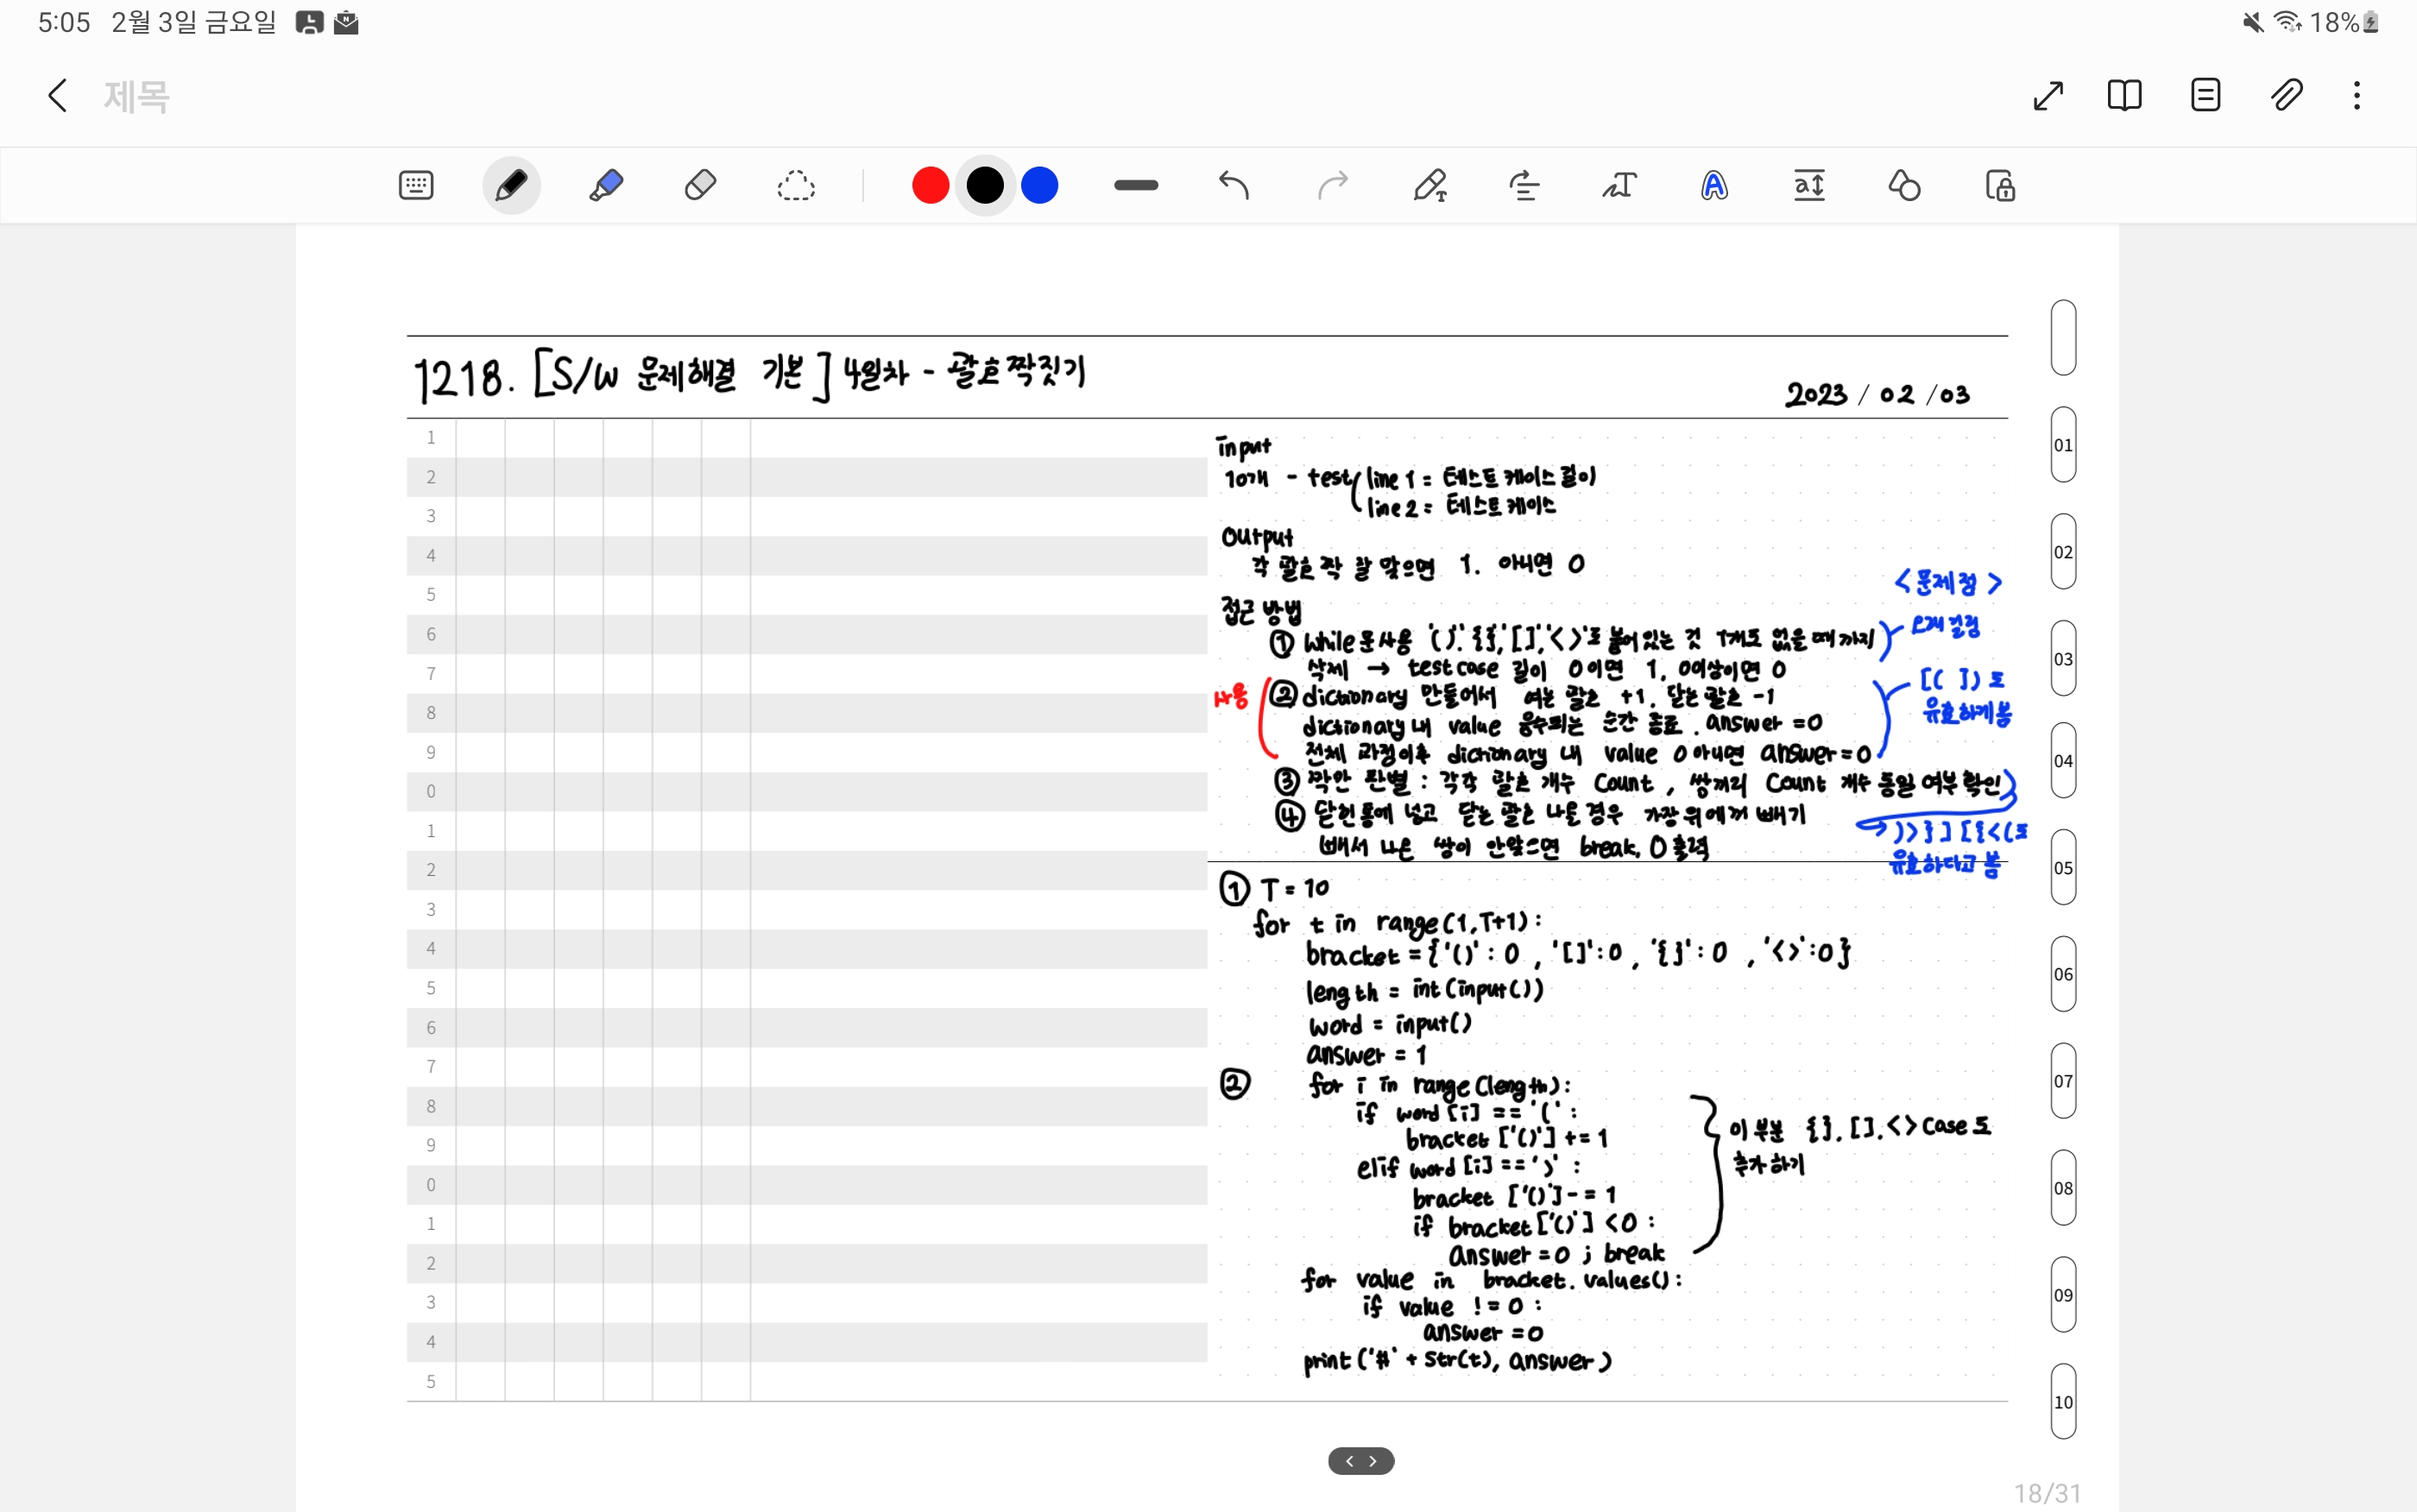 5:05 2월 3일 금요일
18%
제목
1218. [S/W 문제해결 기본] 4일차 - 괄호짝짓기
2023 / 02 / 03
1
2
3
4
5
6
7
8
9
0
1
2
3
4
5
6
7
8
9
0
1
2
3
4
5
input
10개 - test ( line 1 = 테스트케이스길이
line 2 = 테스트케이스
Output
각 괄호 짝 잘 맞으면 1. 아니면 0
접근 방법
① while문사용 '()'.'{}','[]','<>'로 붙어있는 것 1개도 없을때까지
삭제 → testcase 길이 0이면 1, 0이상이면 0
사용
② dictionary 만들어서 여는 괄호 +1. 닫는괄호 -1
dictionary내 value 음수되는 순간 종료. answer =0
전체 과정이후 dictionary 내 value 0 아니면 answer=0
③ 짝만 판별 : 각각 괄호 개수 Count , 쌍끼리 Count 개수 동일 여부 확인
④ 닫힌통에 넣고 닫는 괄호 나올경우 가장위에꺼 빼기
빼서 나온 쌍이 안맞으면 break, 0출력
<문제점>
오래걸림
[( ])도
유효하게봄
))>}][{<(도
유효하다고 봄
① T = 10
for t in range(1,T+1):
bracket = {'()': 0 , '[]':0 , '{}': 0 , '<>':0}
length = int(input())
word = input()
answer = 1
② for i in range(length):
if word[i] == '(' :
bracket ['()'] += 1
elif word[i] == ')' :
bracket ['()'] -= 1
if bracket['()'] <0 :
answer =0 ; break
이 부분 {}. []. <> Case도
추가하기
for value in bracket. values():
if value != 0 :
answer =0
print('#' + str(t), answer)
01
02
03
04
05
06
07
08
09
10
18/31